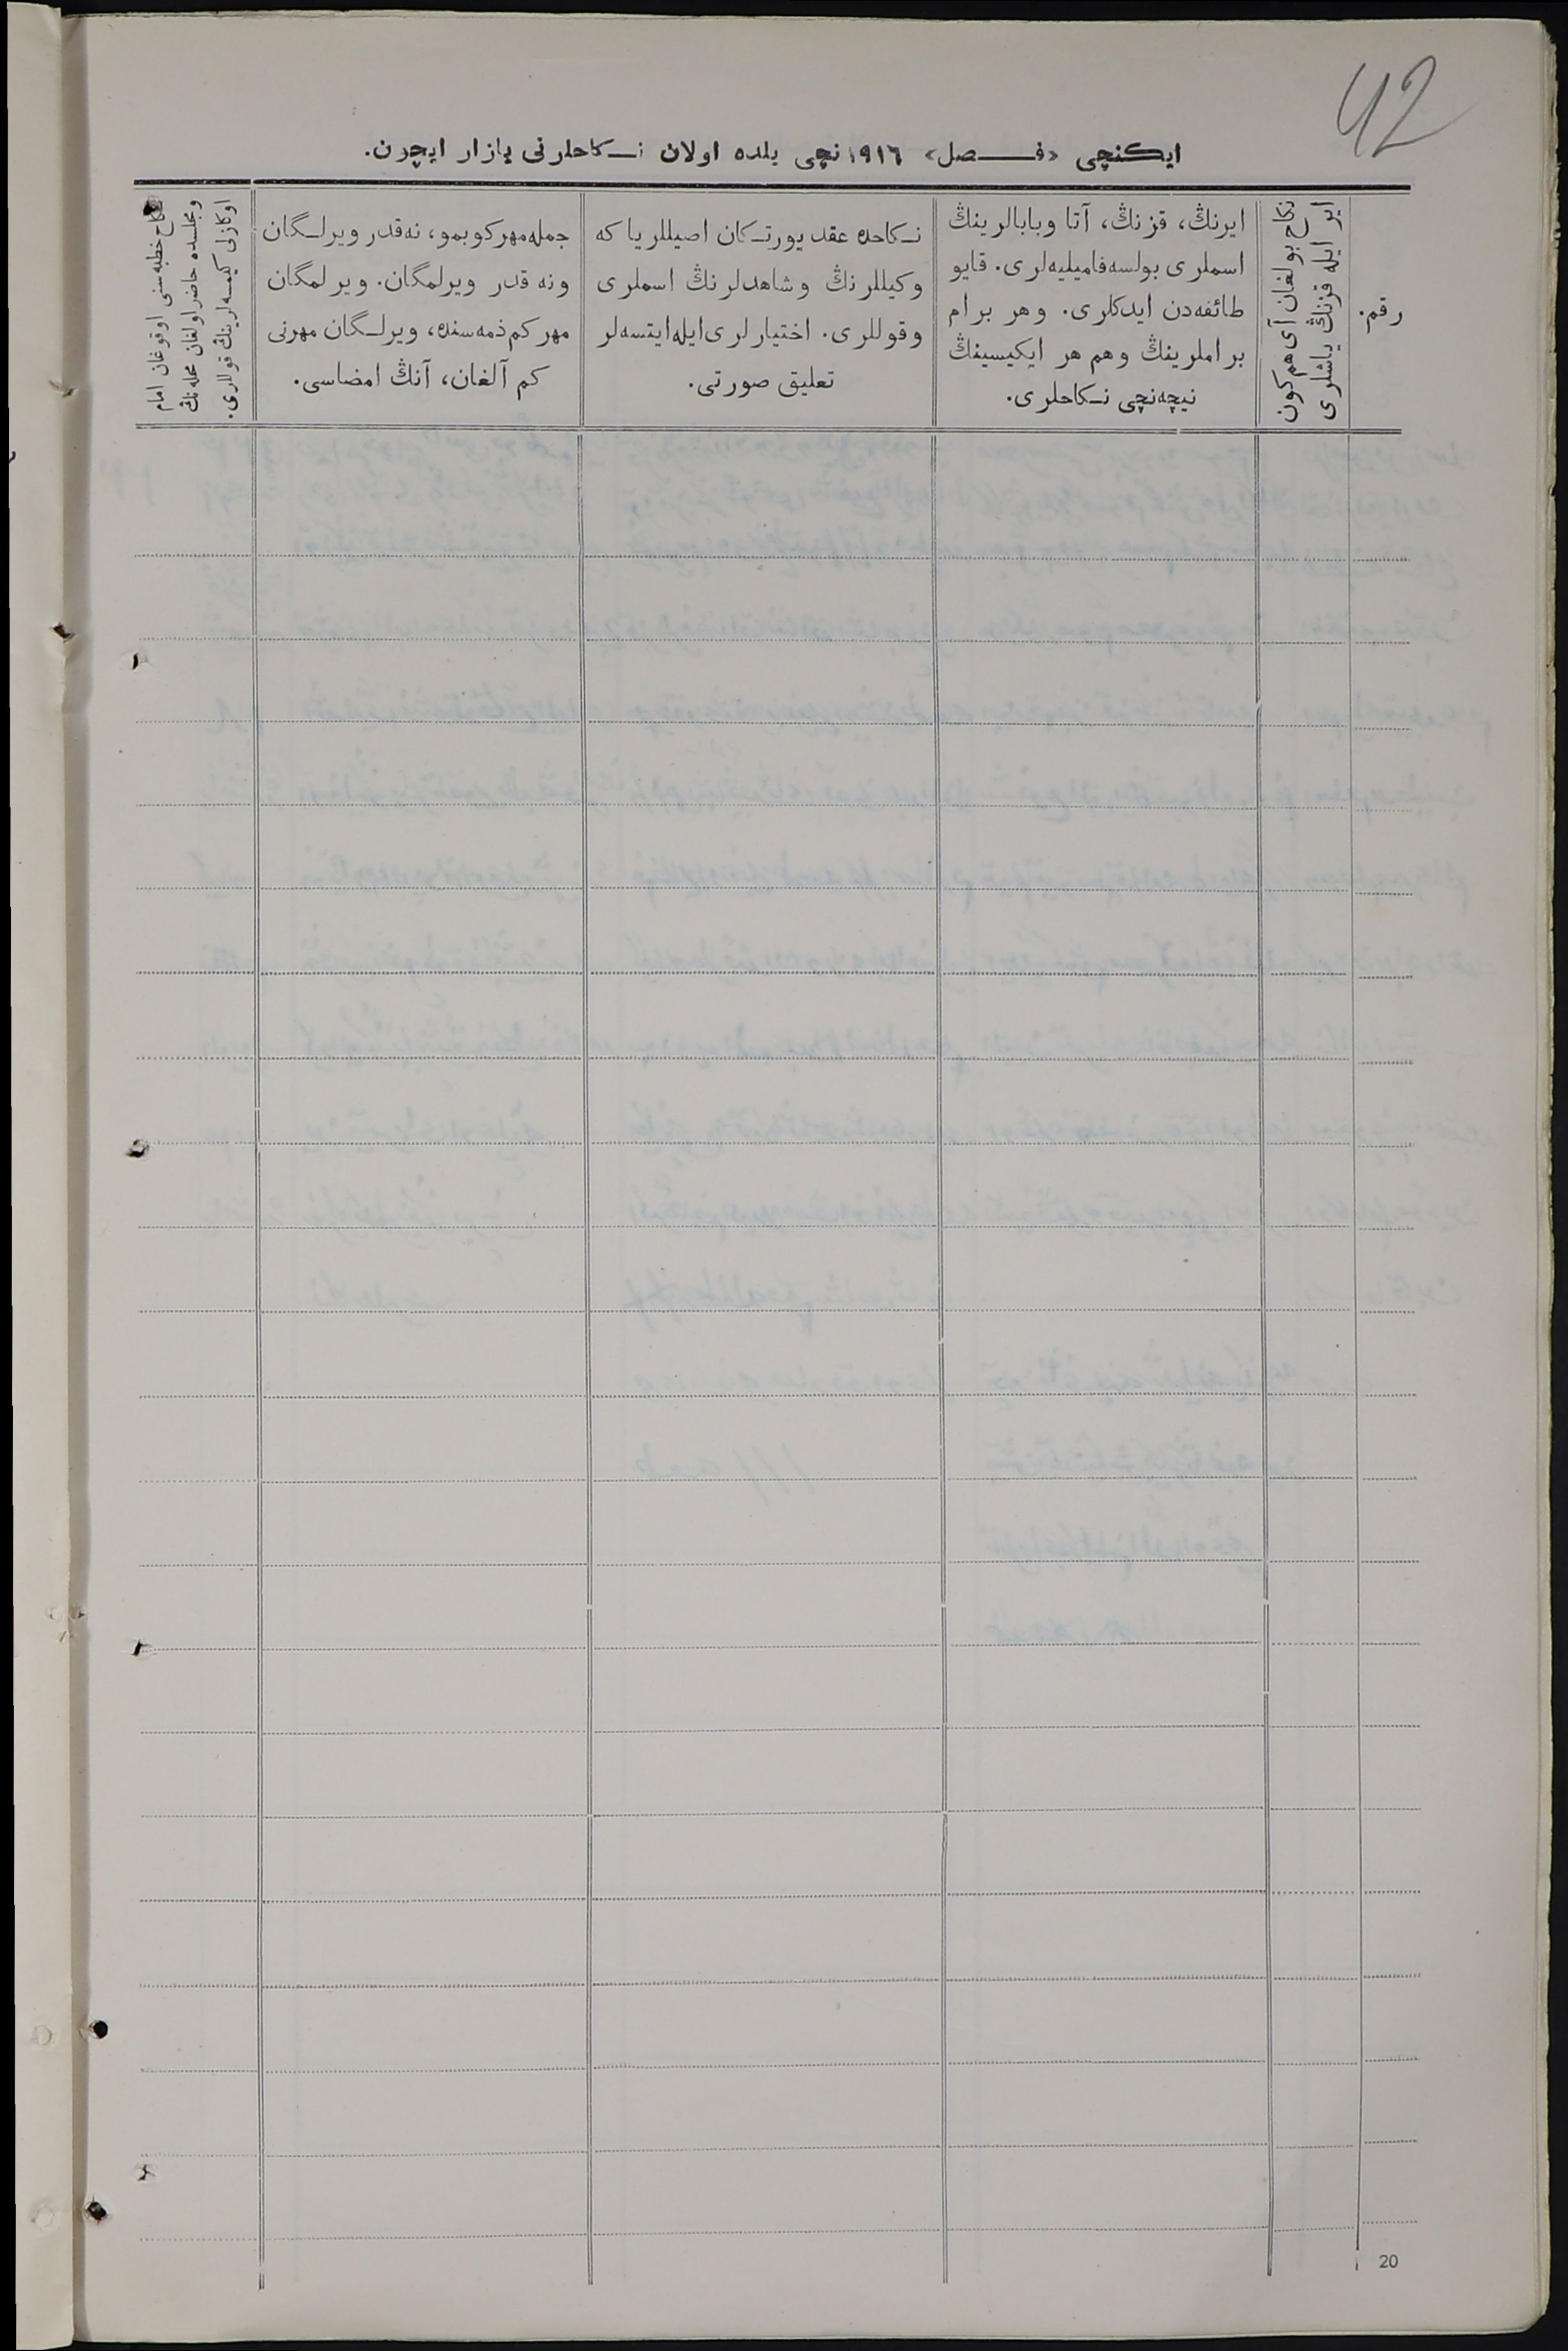 42
ایکنچی «فصل» ١٩١٦نچی یلده اولان نکاحلرنی یازار ایچون.
رقم.
نکاح بولغان آی هم کون
ایر ایله قزنڭ یاشلری
ایرنڭ، قزنڭ، آتا وبابالرینڭ
اسملری بولسه فامیلیه‌لری. قایو
طائفه‌دن ایدکلری. وهر برام
براملرینڭ وهم هر ایکیسینڭ
نیچه‌نچی نکاحلری.
نکاحده عقد یورتکان اصیللر یا که
وکیللرنڭ وشاهدلرنڭ اسملری
وقوللری. اختیارلری ایله ایتسه‌لر
تعلیق صورتی.
جمله مهر کوبمو، نه‌قدر ویرلگان
ونه قدر ویرلمگان. ویرلمگان
مهر کم ذمه‌سنده، ویرلگان مهرنی
کم آلغان، آنڭ امضاسی.
نکاح خطبه‌سنی اوقوغان امام
ومجلسده حاضر اولغان محله‌نڭ
اوکازلی کیمسه‌لرینڭ قوللری.
20